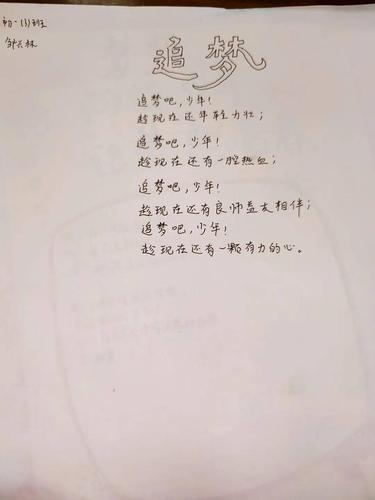 初一(3)班
邹兴林
追梦
追梦吧,少年!
趁现在还年轻力壮;
追梦吧,少年!
趁现在还有一腔热血;
追梦吧,少年!
趁现在还有良师益友相伴;
追梦吧,少年!
趁现在还有一颗有力的心。